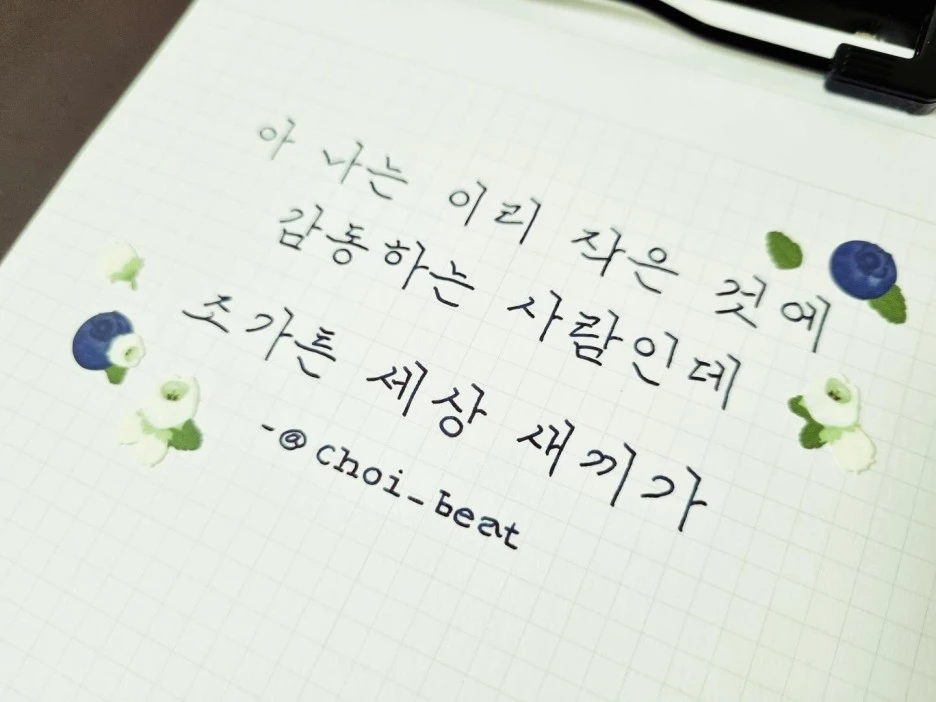 아 나는 이리 작은 것에
감동하는 사람인데
조가튼 세상 새끼가
-@choi_beat